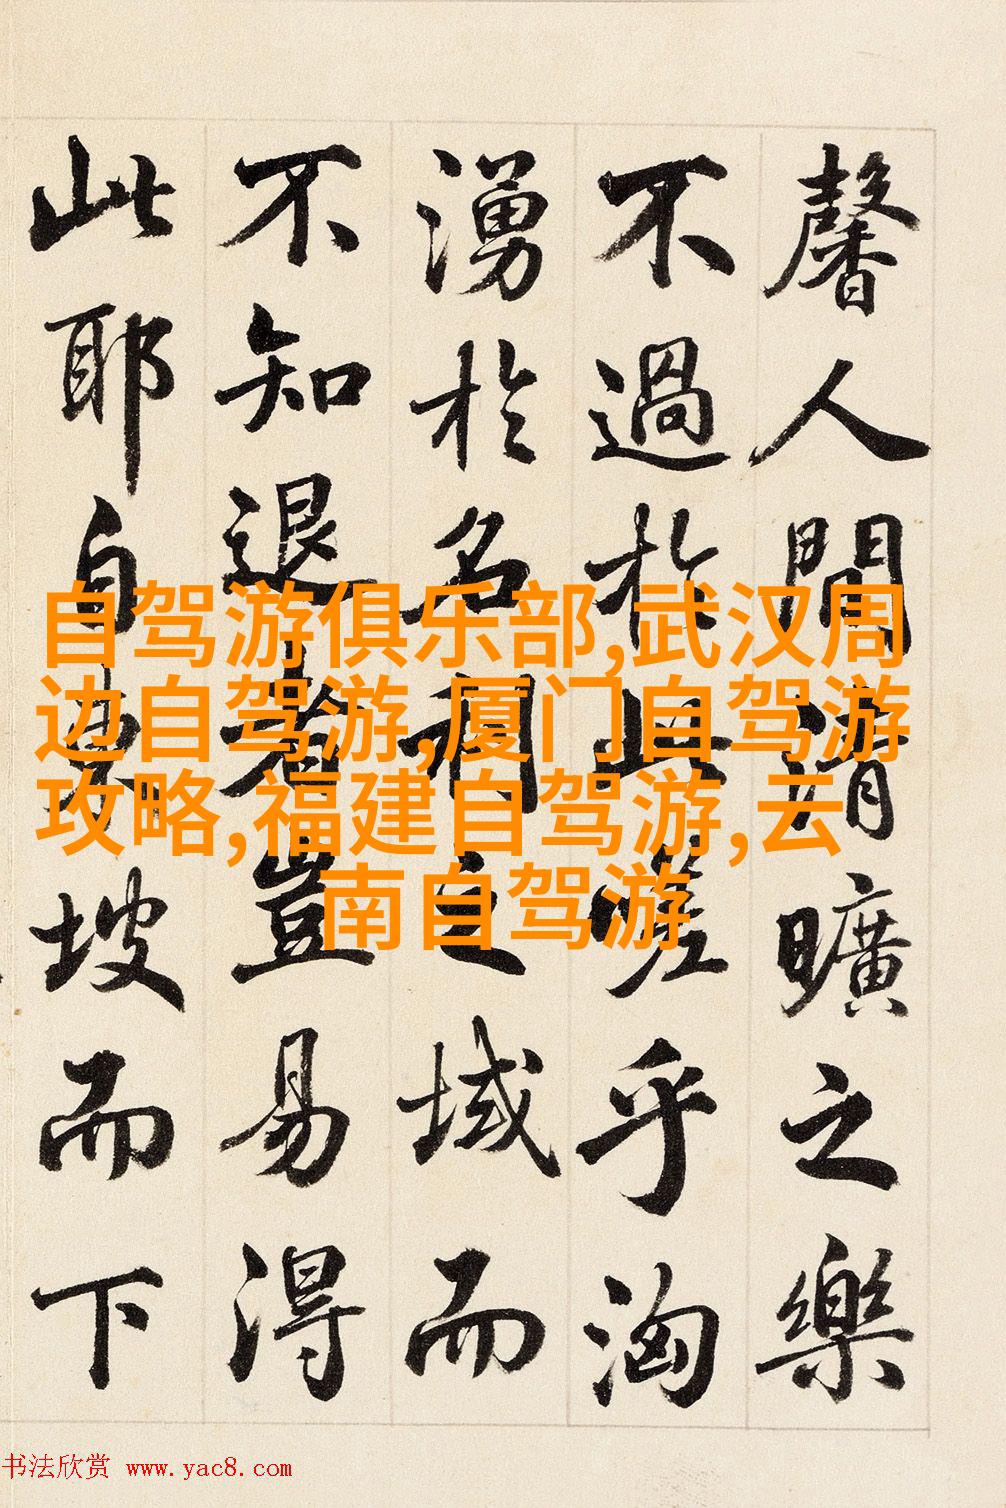 馨人間清曠之樂
不過於此嗟乎洶
湧於名利之域而
不知退者豈易得
此耶自東坡而下
自驾游俱乐部,武汉周
边自驾游,厦门自驾游
攻略,福建自驾游,云
南自驾游
书法欣赏 www.yac8.com